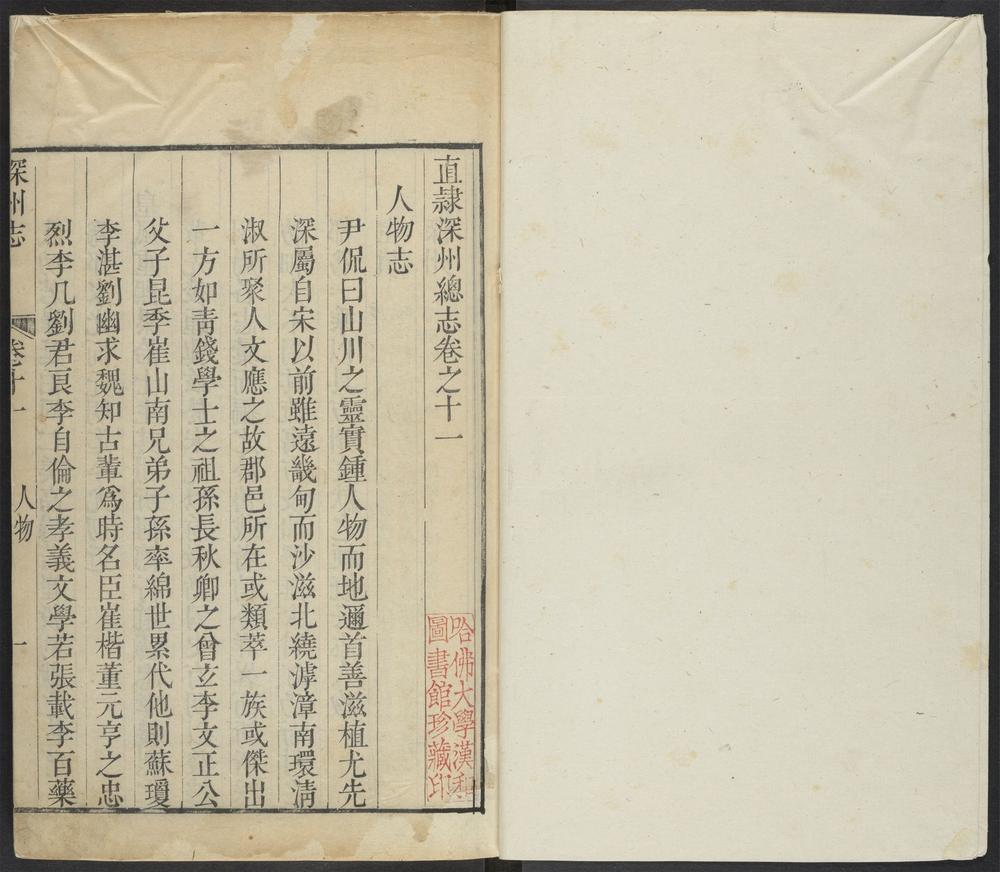 直隷深州總志卷之十一
哈佛大學漢和
圖書館珍藏印
人物志
尹侃曰山川之靈實鍾人物而地邇首善滋植尤先
深屬自宋以前雖遠畿甸而沙滋北繞滹漳南環淸
淑所聚人文應之故郡邑所在或類萃一族或傑出
一方如靑錢學士之祖孫長秋卿之曾玄李文正公
父子昆季崔山南兄弟子孫率綿世累代他則蘇瓊
李湛劉幽求魏知古輩爲時名臣崔楷董元亨之忠
烈李几劉君良李自倫之孝義文學若張載李百藥
深州志
卷十一
人物
一